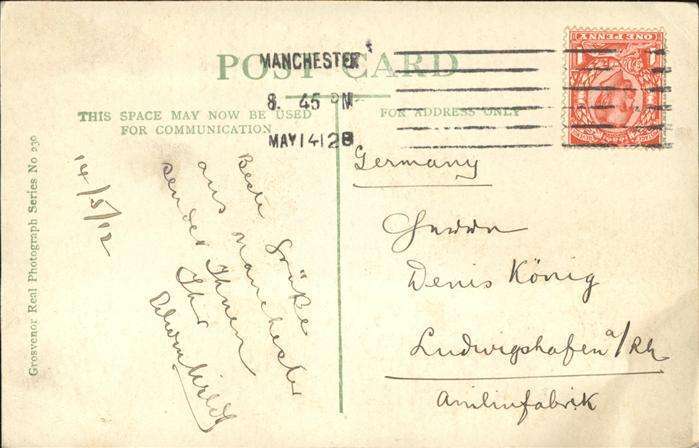 POST CARD
MANCHESTER
8. 45 PM
MAY 14 12
THIS SPACE MAY NOW BE USED
FOR COMMUNICATION
FOR ADDRESS ONLY
ONE PENNY
Grosvenor Real Photograph Series No 230
14/5/12
Beste Grüße
aus Manchester
sendet Ihnen
Ihr
Germany
Herrn
Denis König
Ludwigshafen a/Rh
Anilinfabrik